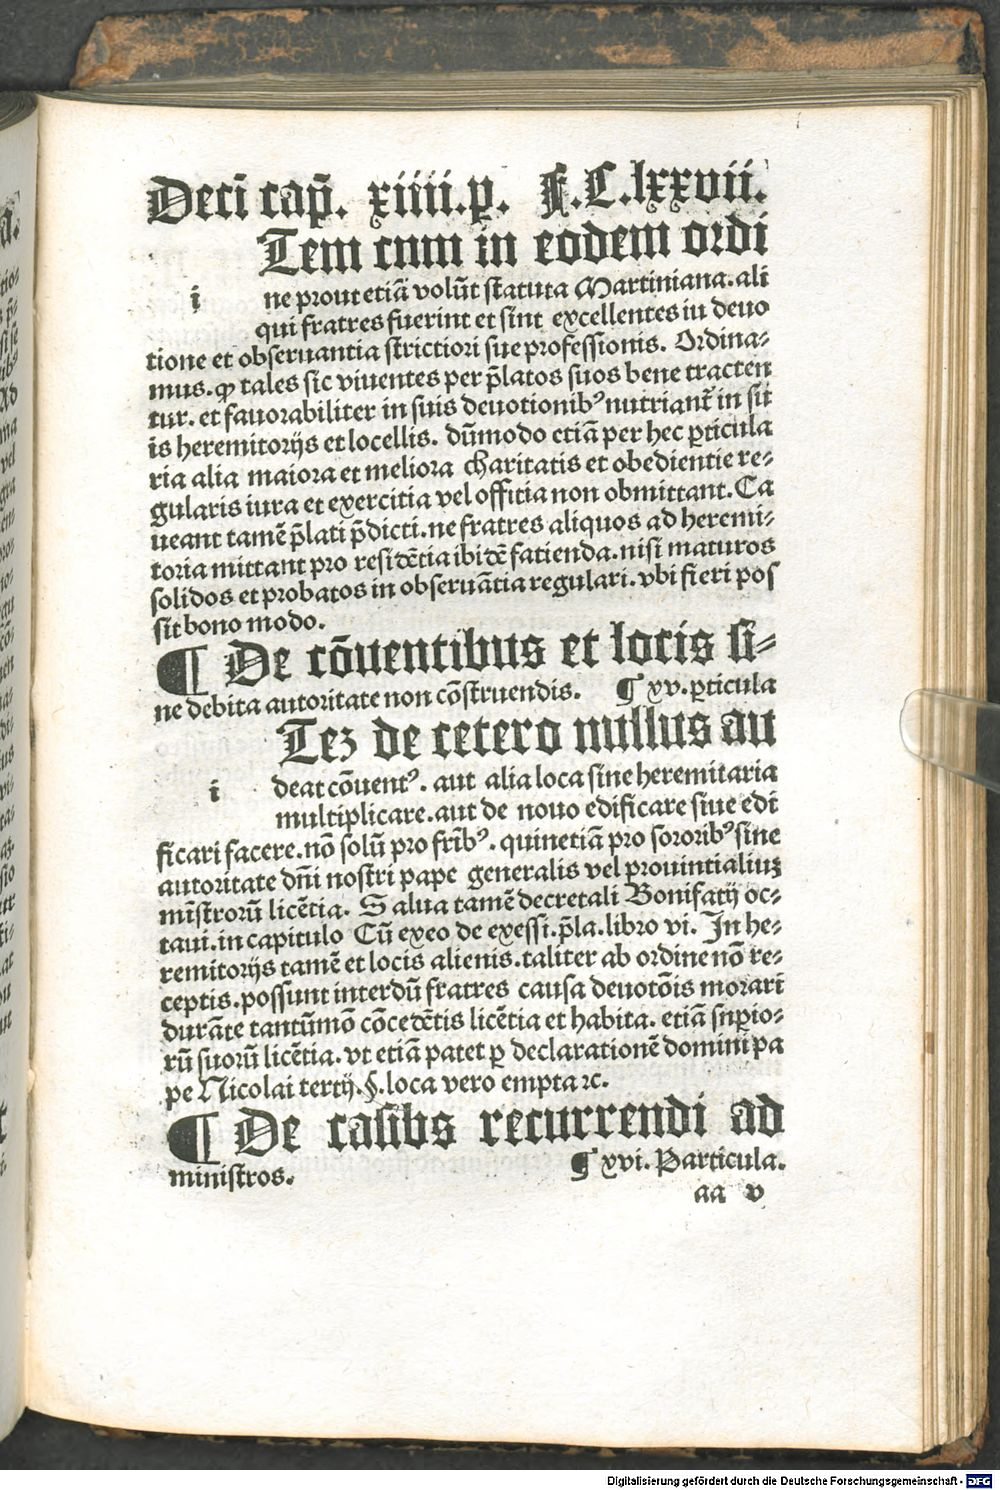 Deci cap̃. xiiii.p. F.C.lxxvii.
Tem cum in eodem ordi
i ne prout etiã volũt statuta Martiniana.ali
qui fratres fuerint et sint excellentes in deuo
tione et obseruantia strictiori sue professionis. Ordina-
mus. ꝙ tales sic viuentes per p̃latos suos bene tracten
tur. et fauorabiliter in suis deuotionibꝰ nutriant᷑ in sii
is heremitorijs et locellis. dũmodo etiã per hec ꝑticula
ria alia maiora et meliora charitatis et obedientie re-
gularis iura et exercitia vel offitia non obmittant. Ca
ueant tamẽ p̃lati p̃dicti.ne fratres aliquos ad heremi-
toria mittant pro residẽtia ibidẽ fatienda.nisi maturos
solidos et probatos in obseruãtia regulari.vbi fieri pos
sit bono modo.
¶ De cõuentibus et locis si-
ne debita autoritate non cõstruendis. ¶ xv.ꝑticula
Teꝫ de cetero nullus au
i deat cõuentꝰ. aut alia loca sine heremitaria
multiplicare.aut de nouo edificare siue edi
ficari facere.nõ solũ pro fr̃ibꝰ. quinetiã pro sororibꝰ sine
autoritate dñi nostri pape generalis vel prouintialiuꝫ
mĩstrorũ licẽtia. Salua tamẽ decretali Bonifatij oc-
taui.in capitulo Cũ exeo de exessi.p̃la.libro vi. In he-
remitorijs tamẽ et locis alienis.taliter ab ordine nõ re-
ceptis.possunt interdũ fratres causa deuotõis morari
durãte tantũmõ cõcedẽtis licẽtia et habita. etiã suꝑio-
rũ suorũ licẽtia.vt etiã patet ꝑ declarationẽ domini pa
pe Nicolai tertij.§.loca vero empta ⁊c.
¶ De casibs recurrendi ad
ministros. ¶ xvi. Particula.
aa v
Digitalisierung gefördert durch die Deutsche Forschungsgemeinschaft - DFG